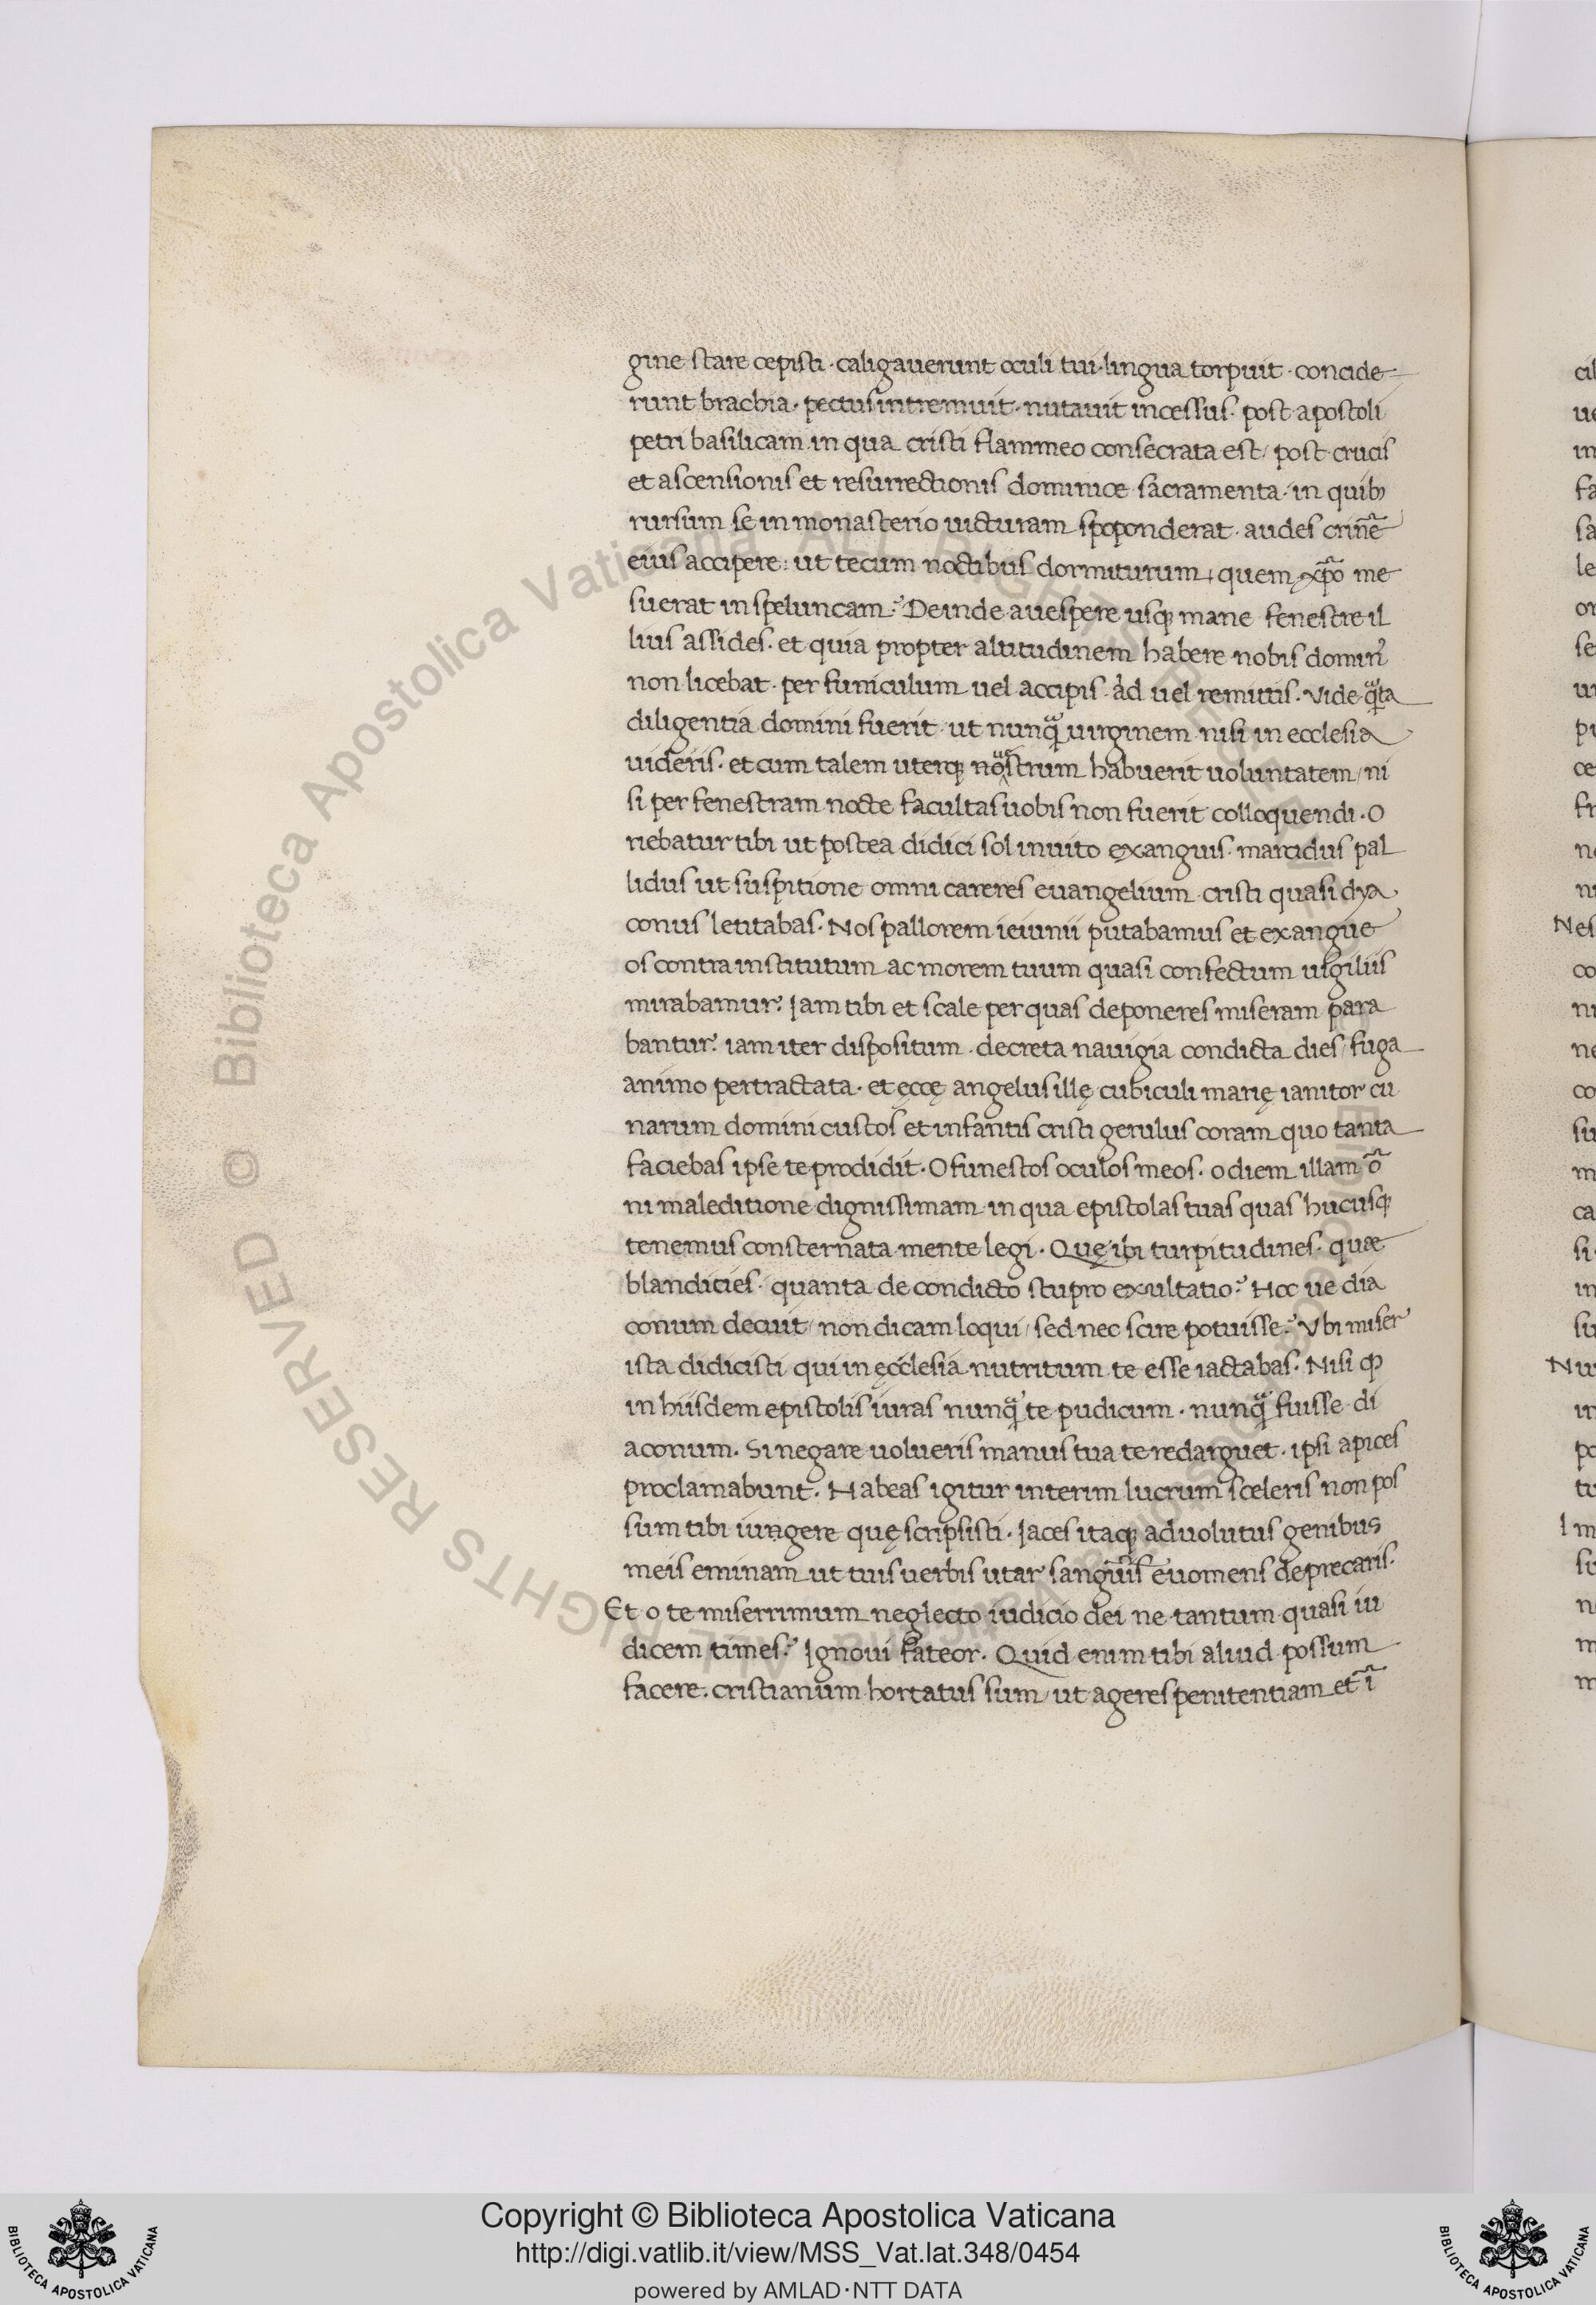 gine stare cepisti · caligauerunt oculi tui · lingua torpuit · concide
runt brachia · pectus intremuit · nutauit incessus · post apostoli
petri basilicam in qua cristi flammeo consecrata est / post crucis
et ascensionis et resurrectionis dominice sacramenta · in quibꝫ
rursum se in monasterio uicturam spoponderat · audes crinẽ
eius accipere : ut tecum noctibus dormiturum quem xp̃o me
suerat in speluncam ? Deinde a uespere usqꝫ mane fenestre il
lius assides · et quia propter altitudinem habere nobis domin᾽
non licebat · per funiculum uel accipis ad uel remittis · Vide q̃ta
diligentia domini fuerit · ut nunq̃ uirginem nisi in ecclesia
uideris · et cum talem uterqꝫ nostrum habuerit uoluntatem / ni
si per fenestram nocte facultas uobis non fuerit colloquendi · O
riebatur tibi ut postea didici sol inuito exanguis · marcidus pal
lidus ut suspitione omni careres euangelium cristi quasi dya
conus letitabas · Nos pallorem ieiunii putabamus et exangue
os contra institutum ac morem tuum quasi confectum uigiliis
mirabamur ? Iam tibi et scale per quas deponeres miseram para
bantur ? iam iter dispositum · decreta nauigia condicta dies / fuga
animo pertractata · et ęccę angelus illę cubiculi marię ianitor cu
narum domini custos et infantis cristi gerulus coram quo tanta
faciebas ipse te prodidit · O funestos oculos meos · o diem illam õ
ni maleditione dignissimam in qua epistolas tuas quas hucusqꝫ
tenemus consternata mente legi · Quę ibi turpitudines · quæ
blandicies · quanta de condicto stupro exultatio ? Hoc ue dia
conum decuit / non dicam loqui / sed nec scire potuisse ? Vbi miser
ista didicisti qui in ęcclesia nutritum te esse iactabas · Nisi ꝙ
in hiisdem epistolis iuras nunq̃ te pudicum · nunq̃ fuisse di
aconum · Si negare uolueris manus tua te redarguet · ipsi apices
proclamabunt · Habeas igitur interim lucrum sceleris non pos
sum tibi iungere quę scripsisti · Iaces itaqꝫ aduolutus genibus
meis eminam ut tuis uerbis utar sanguis euomens deprecaris ·
Et o te miserrimum neglecto iudicio dei ne tantum quasi iu
dicem times ? Ignoui fateor · Quid enim tibi aliud possum
facere · cristianum hortatus sum / ut ageres penitentiam et ĩ
cil
ue
in
fa
sa
le
or
se
pu
ce
fr
ne
Nes
co
ni
ne
co
su
m
ca
si
in
su
Nu
in
po
tu
Im
su
n
m
m
© Biblioteca Apostolica Vaticana ALL RIGHTS RESERVED
Copyright © Biblioteca Apostolica Vaticana
http://digi.vatlib.it/view/MSS_Vat.lat.348/0454
powered by AMLAD·NTT DATA
BIBLIOTECA APOSTOLICA VATICANA
BIBLIOTECA APOSTOLICA VATICANA